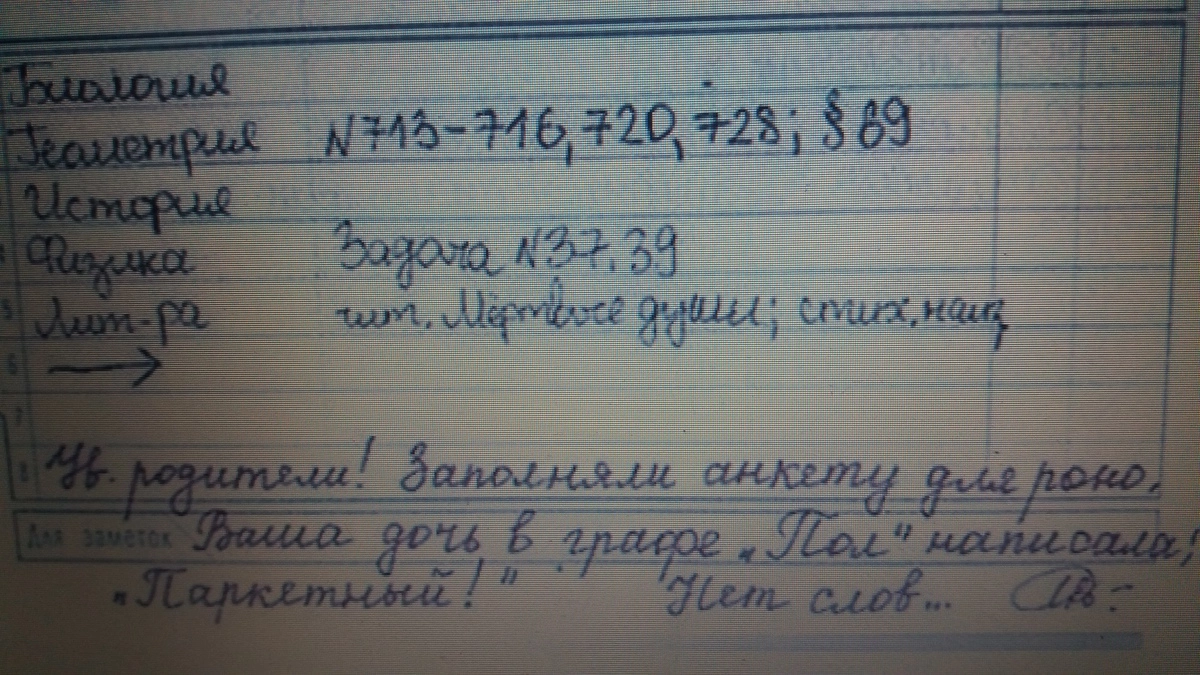 Биология
Геометрия N713-716, 720, 728; § 69
История
Физика Задача N37, 39
5 Лит-ра чит. Мёртвые души; стих. наиз
6 →
7
8 Ув. родители! Заполняли анкету для роно.
Для заметок Ваша дочь в графе „Пол" написала,
„Паркетный!" Нет слов...